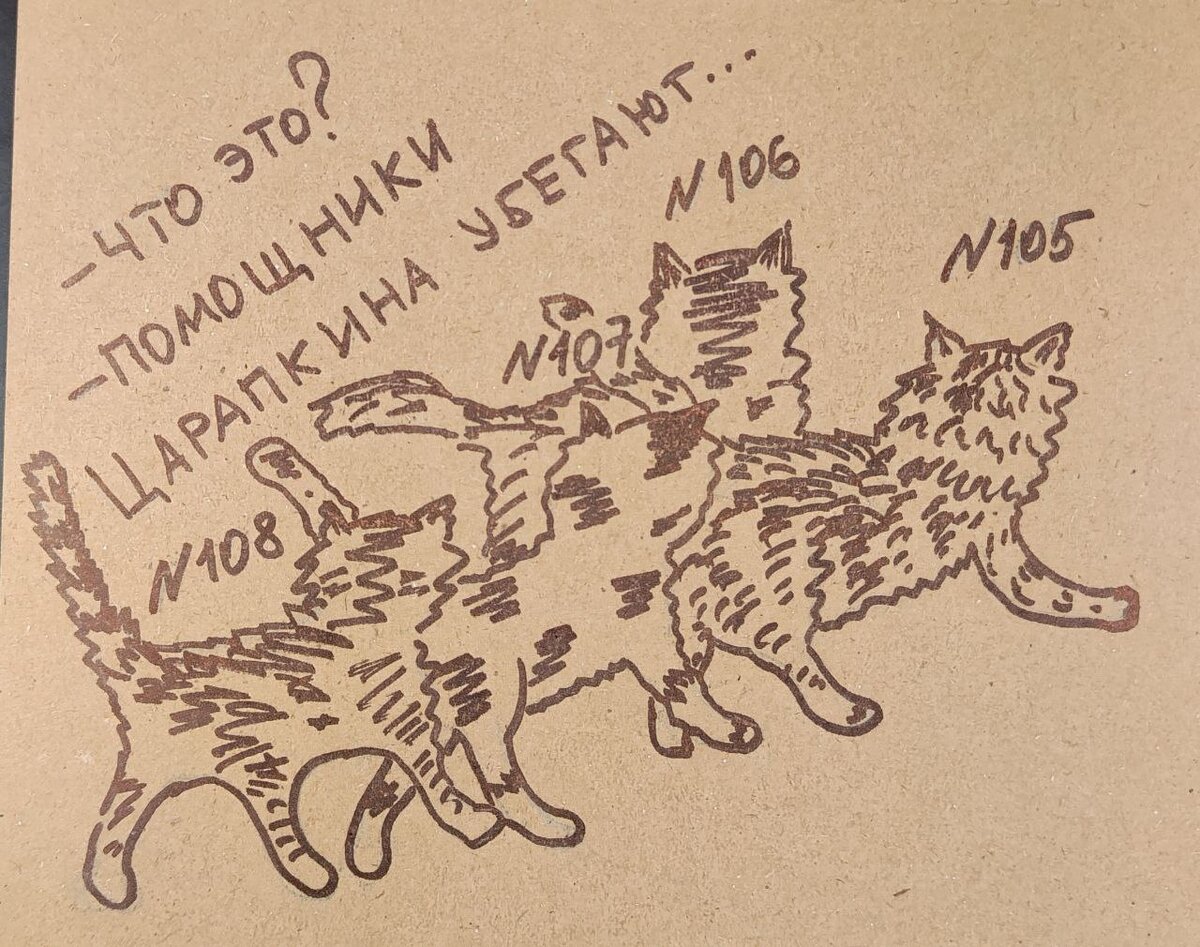 -ЧТО ЭТО?
-ПОМОЩНИКИ
ЦАРАПКИНА УБЕГАЮТ...
N106
N105
N107
N108